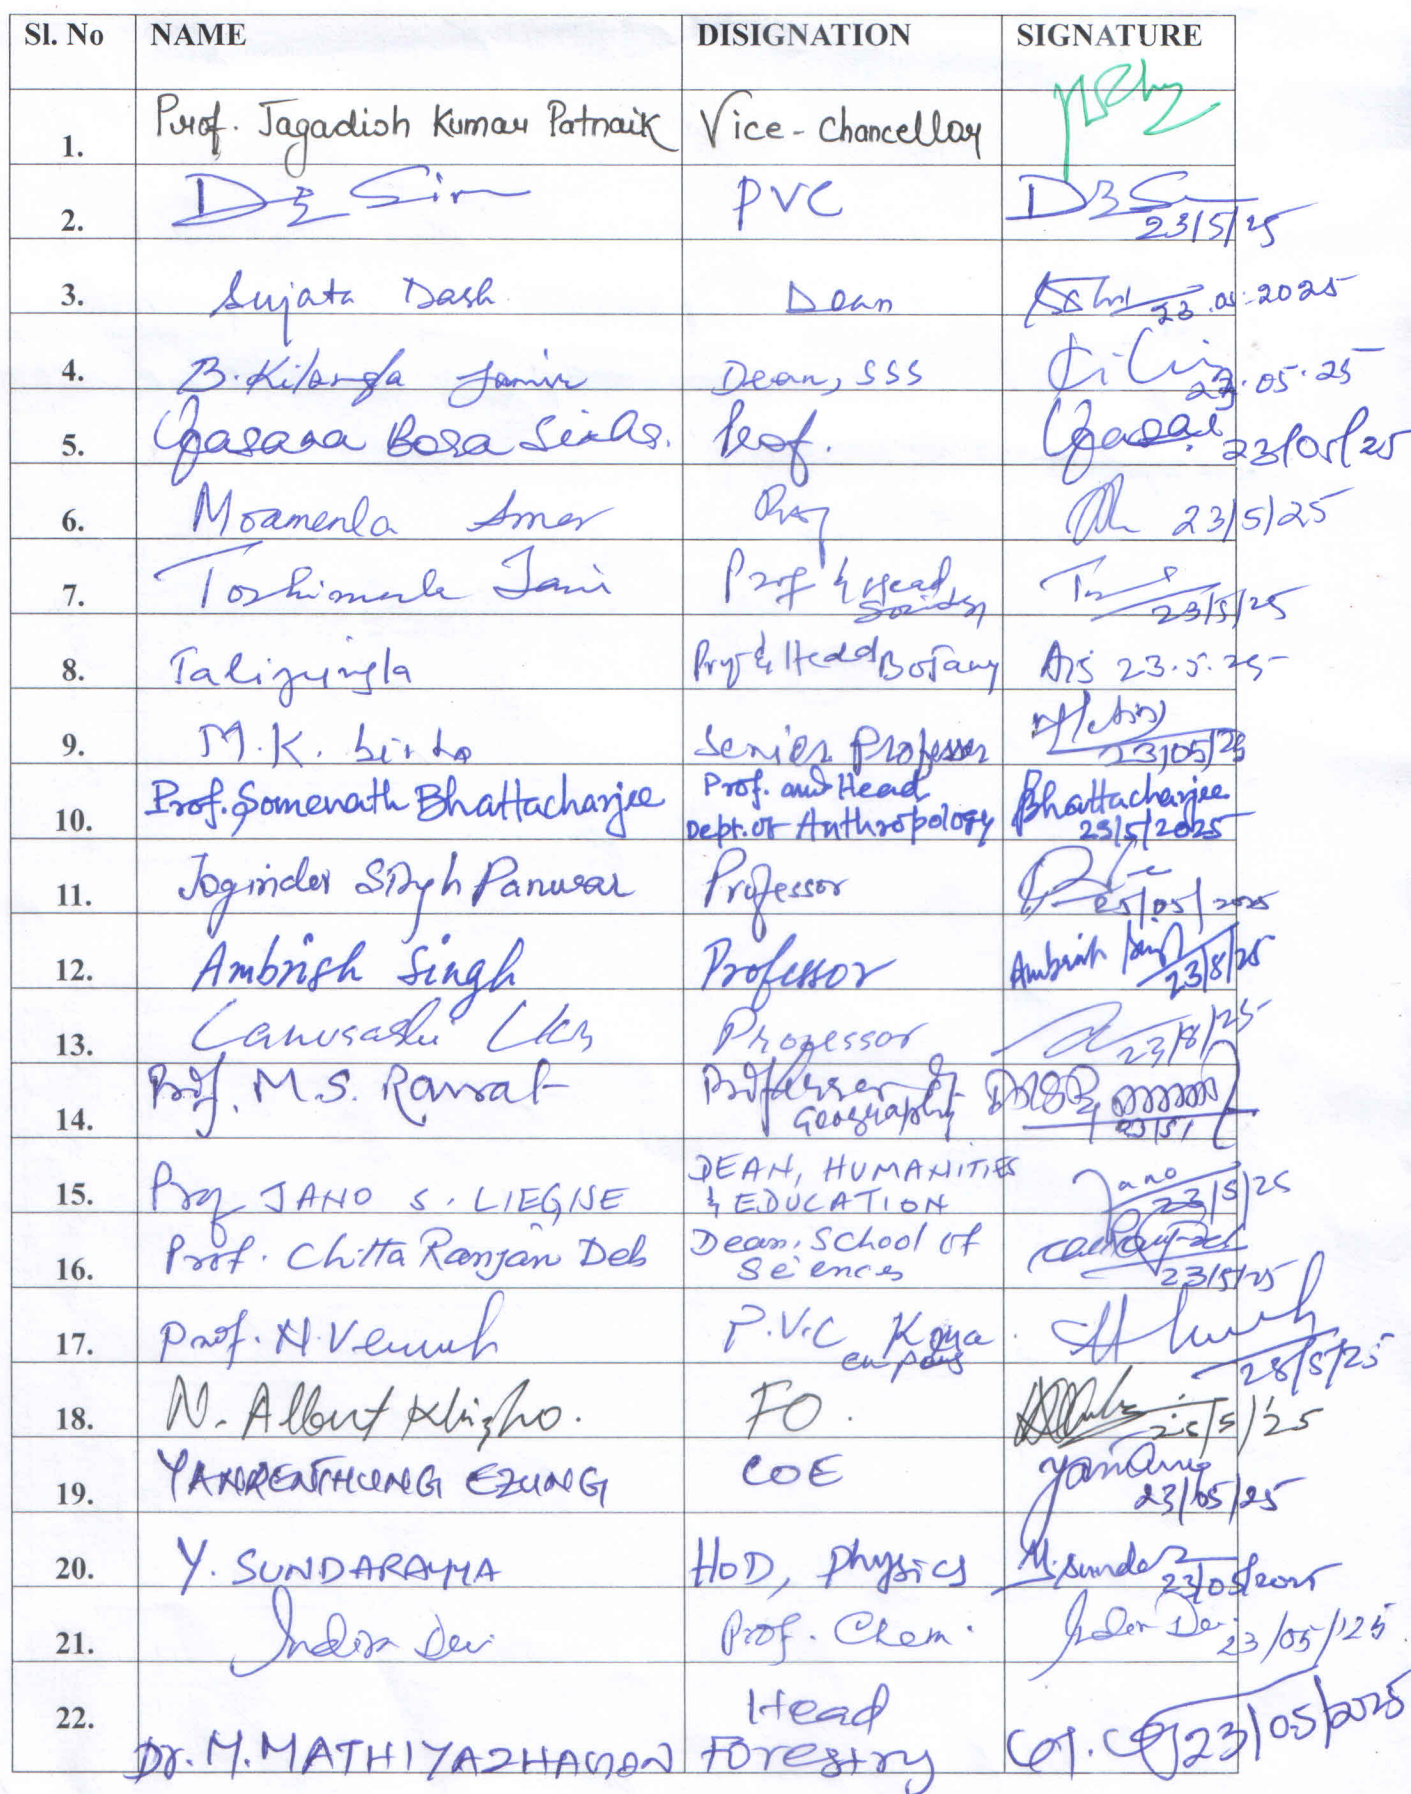 Sl. No NAME DISIGNATION SIGNATURE
1. Prof. Jagadish Kumar Patnaik Vice-Chancellor
2. PVC 23/5/25
3. Sujata Dash Dean 23.05.2025
4. B. Kilangla Jamir Dean, SSS 23.05.25
5. Bora Prof. 23/05/25
6. Moamenla Amer Prof 23/5/25
7. Prof & Head 23/5/25
8. Talijungla Prof & Head Botany 23.5.25
9. M.K. Sinha Senior Professor 23/05/25
10. Prof. Somenath Bhattacharjee Prof. and Head
Dept. of Anthropology Bhattacharjee
23/5/2025
11. Joginder Singh Panwar Professor /05/2025
12. Ambrish Singh Professor Ambrish Singh
23/5/25
13. Lanusashi Lkr Professor
14. Prof. M.S. Rawat Professor of
Geography
23/5/
15. Prof JANO S. LIEGISE DEAN, HUMANITIES
& EDUCATION Jano
23/5/25
16. Prof. Chitta Ranjan Deb Dean, School of
Sciences
23/5/25
17. Prof. N. Venuh P.V.C
campus
18. N. Albert Khizho. FO. /5/25
19. YANRENTHUNG EZUNG COE
23/05/25
20. Y. SUNDARAYYA HoD, Physics
23/05/2025
21. Indira Devi Prof. Chem. Indira Devi
23/05/'25
22. Dr. M. MATHIYAZHAGAN Head
Forestry 23/05/2025